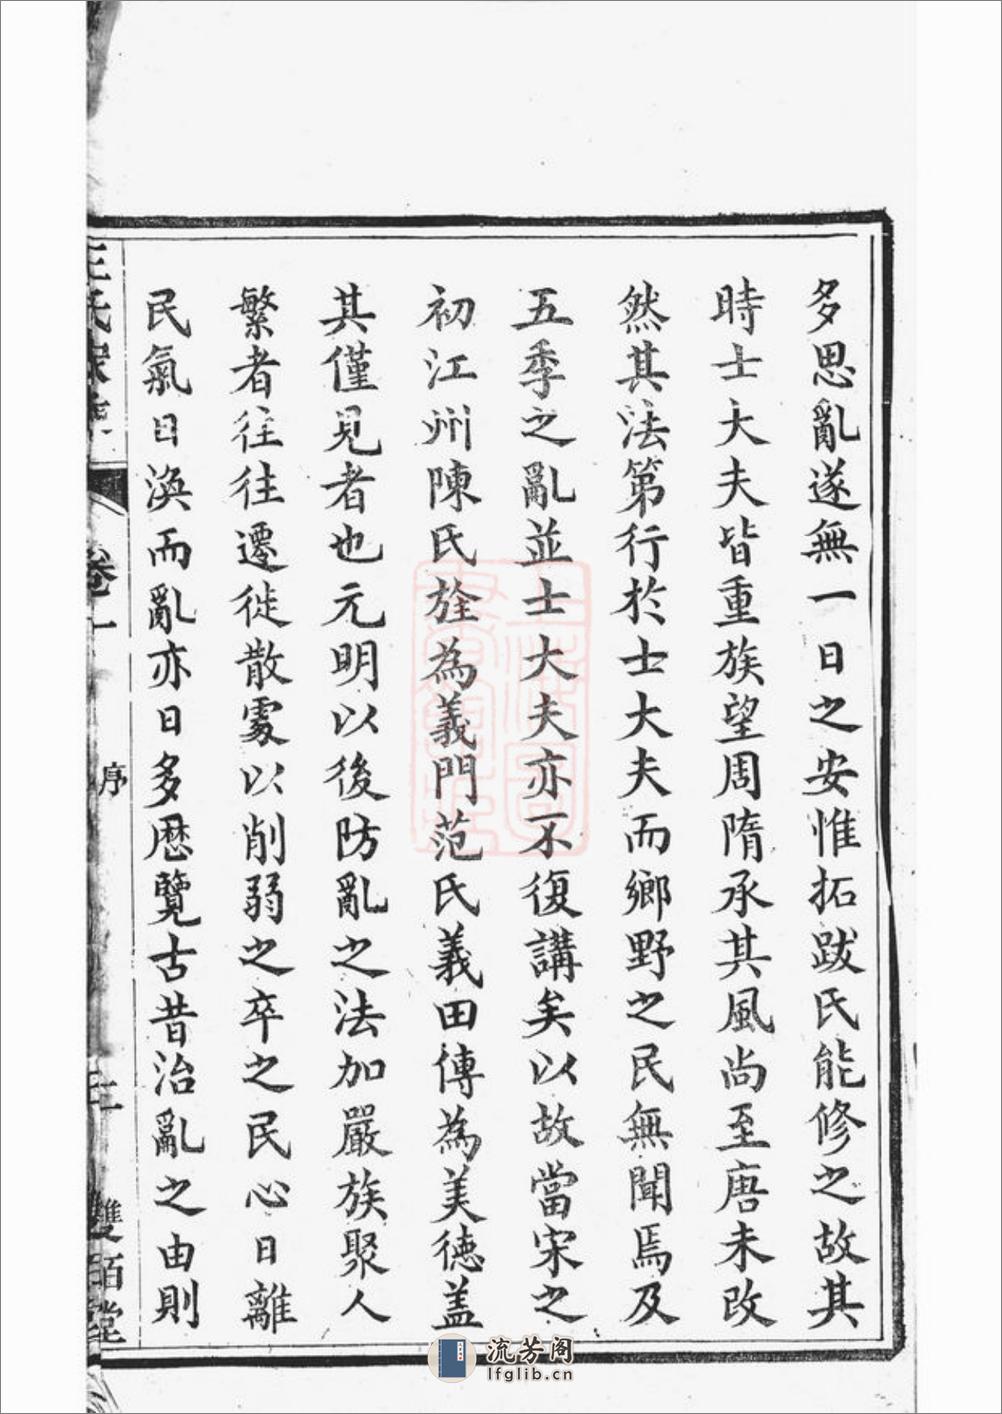 多思亂遂無一日之安惟拓跋氏能修之故其
時士大夫皆重族望周隋承其風尚至唐未改
然其法第行於士大夫而鄉野之民無聞焉及
五季之亂並士大夫亦不復講矣以故當宋之
初江州陳氏旌為義門范氏義田傳為美德盖
其僅見者也元明以後防亂之法加嚴族聚人
繁者往往遷徙散處以削弱之卒之民心日離
民氣日渙而亂亦日多歷覽古昔治亂之由則
王氏家乘
卷一
序
二
雙栢堂
流芳阁
lfglib.cn